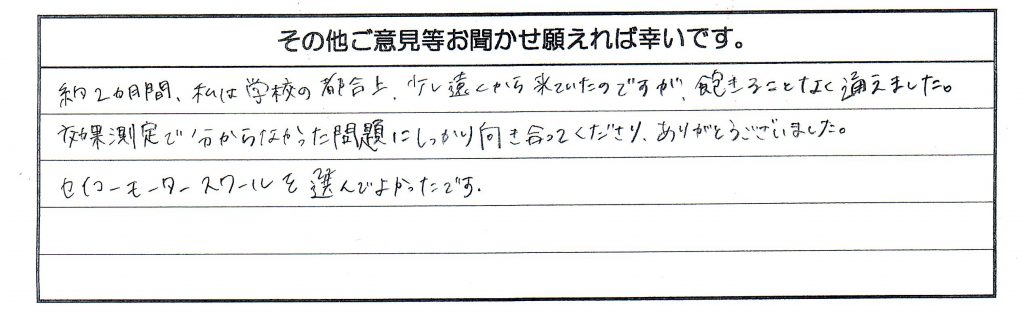 その他ご意見等お聞かせ願えれば幸いです。
約2カ月間、私は学校の都合上、少し遠くから来ていたのですが、飽きることなく通えました。
効果測定で分からなかった問題にしっかり向き合ってくださり、ありがとうございました。
セイコーモータースクールを選んでよかったです。